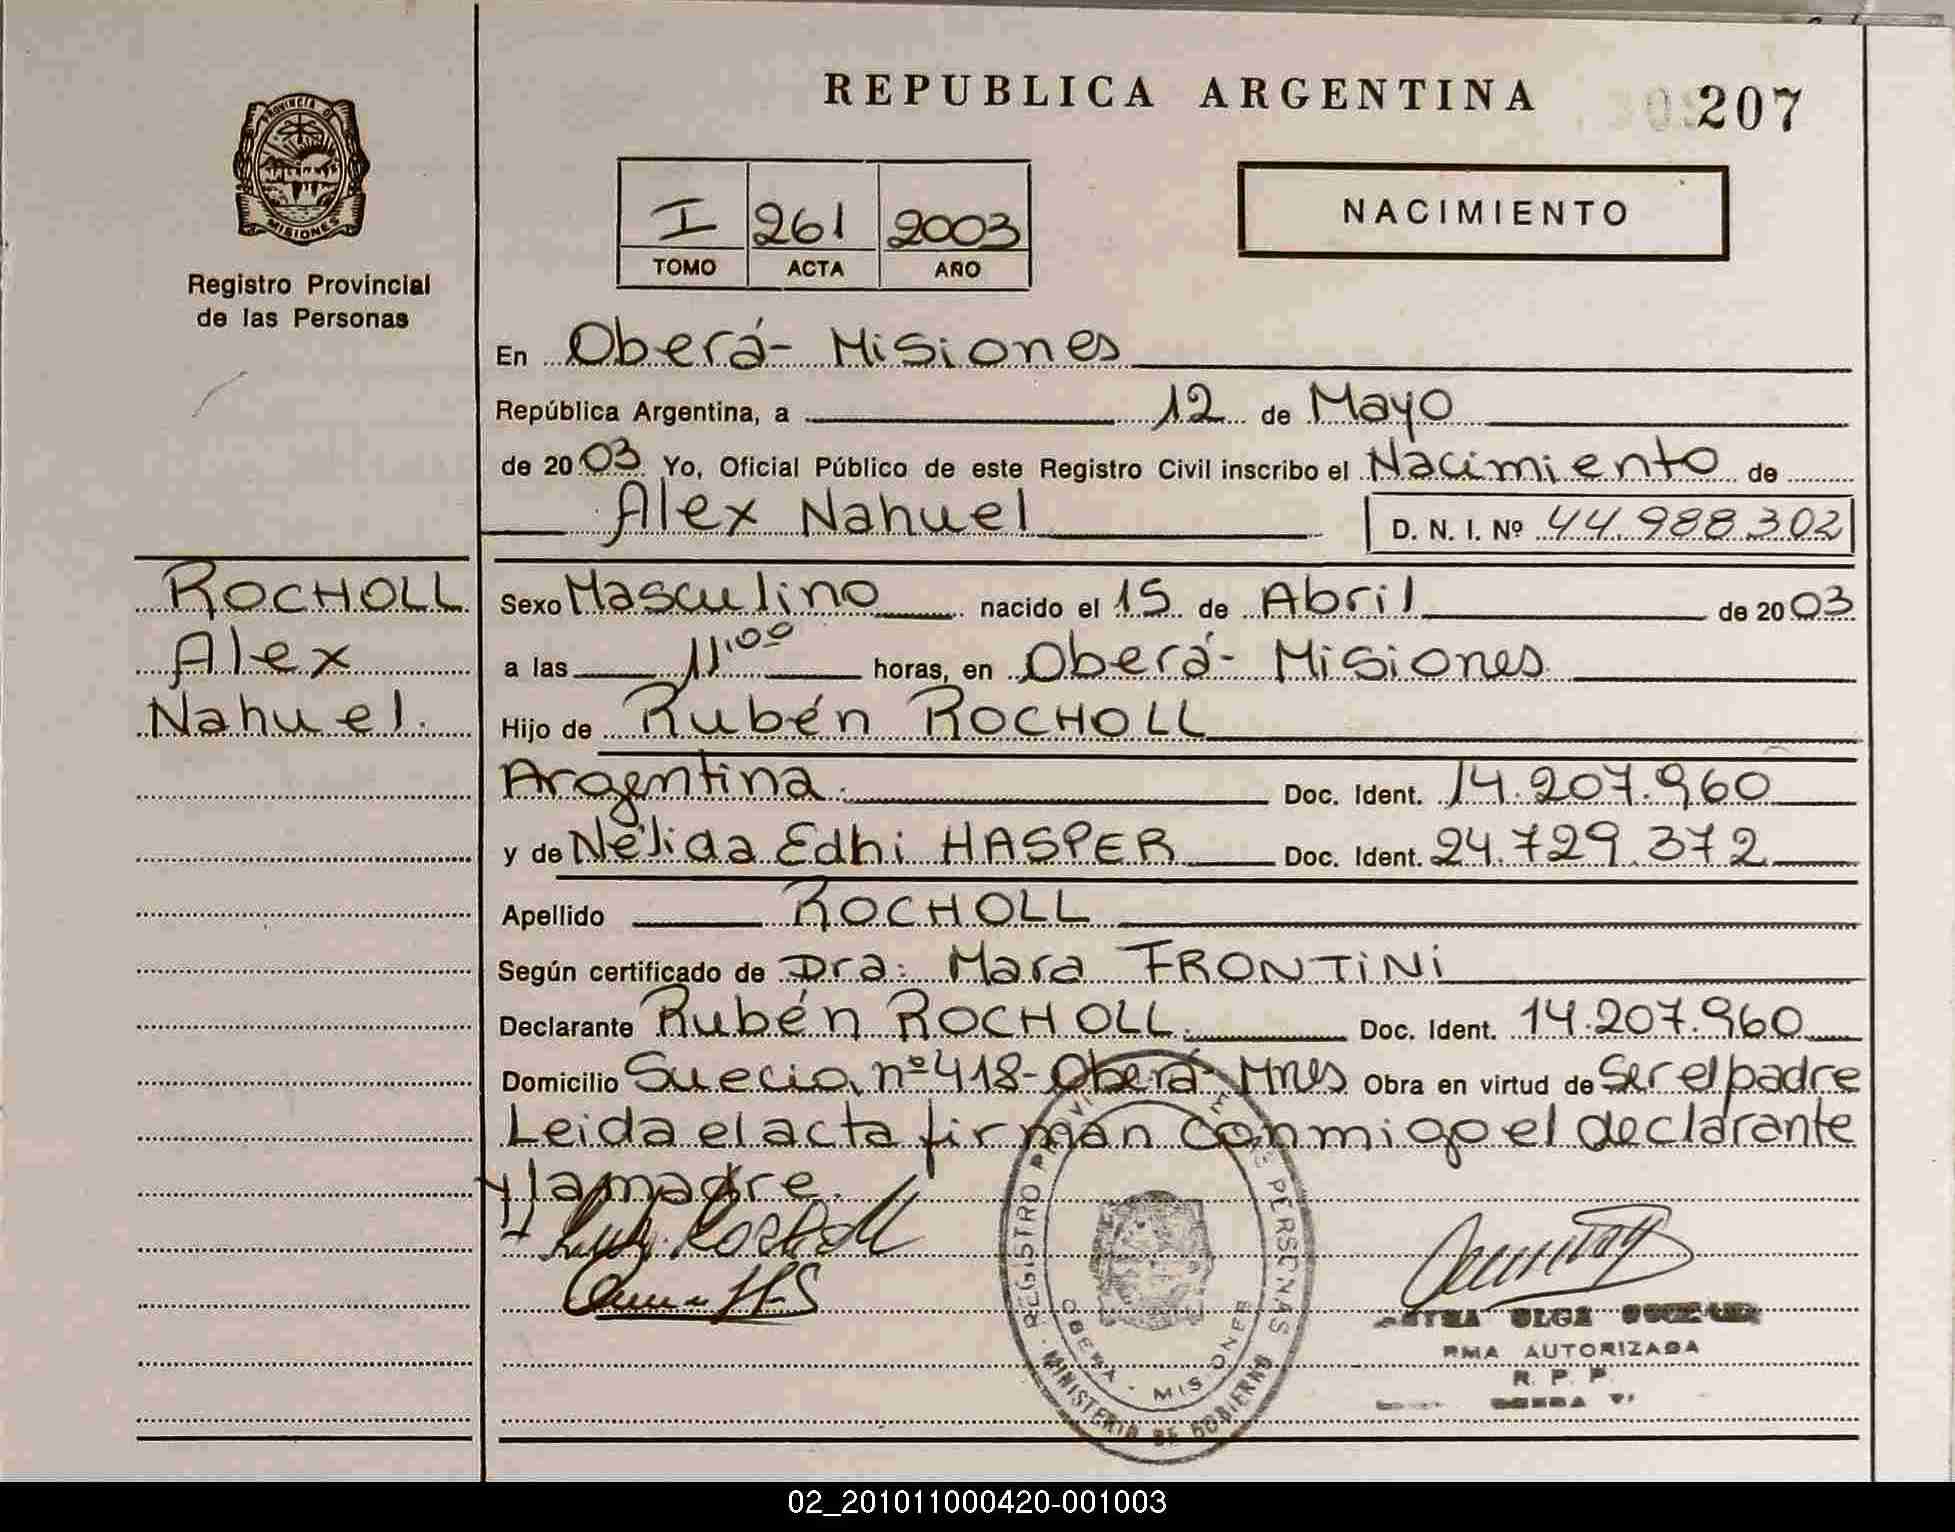 REPUBLICA ARGENTINA
207
PROVINCIA DE
MISIONES
Registro Provincial
de las Personas
I 261 2003
TOMO ACTA AÑO
NACIMIENTO
En Oberá- Misiones
República Argentina, a 12 de Mayo
de 2003 Yo, Oficial Público de este Registro Civil inscribo el Nacimiento de
Alex Nahuel D. N. I. Nº 44.988.302
ROCHOLL
Alex
Nahuel.
Sexo Masculino nacido el 15 de Abril de 2003
a las 11,00 horas, en Oberá- Misiones
Hijo de Rubén ROCHOLL
Argentina. Doc. Ident. 14.207.960
y de Nélida Edhi HASPER Doc. Ident. 24.729.372
Apellido ROCHOLL
Según certificado de Dra: Mara FRONTiNi
Declarante Rubén ROCHOLL. Doc. Ident. 14.207.960
Domicilio Suecia nº 418- Oberá- Mnes Obra en virtud de Ser el padre
Leida el acta firman conmigo el declarante
y la madre.
REGISTRO PERSONAS
OBERA - MISIONES
MINISTERIO DE GOBIERNO
OLGA
AUTORIZADA
R. P. P.
02_201011000420-001003